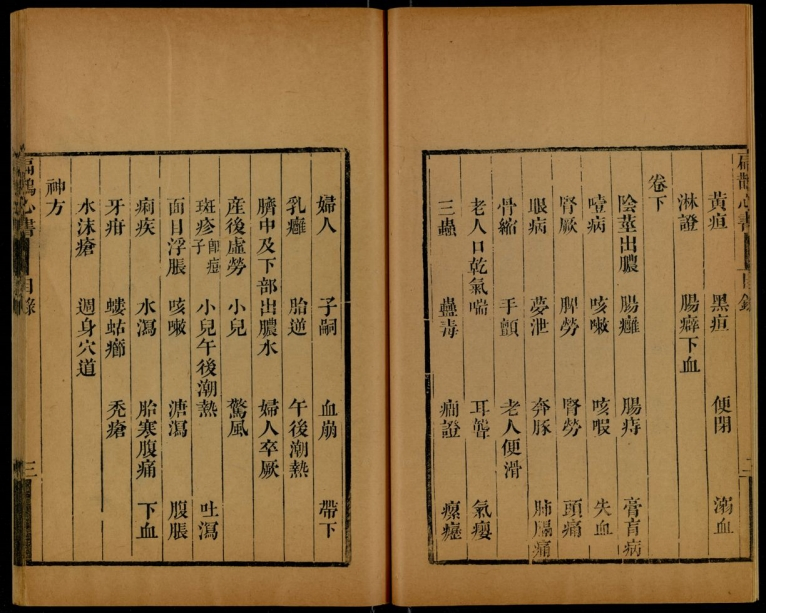 扁鵲心書 目錄 二
黃疸 黑疸 便閉 溺血
淋證 腸癖下血
卷下
陰莖出膿 腸癰 腸痔 膏肓病
噎病 咳嗽 咳嘏 失血
腎厥 脾勞 腎勞 頭痛
眼病 夢泄 奔豚 肺膓癰
骨縮 手顫 老人便滑
老人口乾氣喘 耳聾 氣癭
三蟲 蠱毒 癇證 瘰癧
婦人 子嗣 血崩 帶下
乳癰 胎逆 午後潮熱
臍中及下部出膿水 婦人卒厥
産後虛勞 小兒 驚風
斑疹 即痘子 小兒午後潮熱 吐瀉
面目浮脹 咳嗽 溏瀉 腹脹
痢疾 水瀉 胎寒腹痛 下血
牙疳 螻蛄癤 禿瘡
水沫瘡 週身穴道
神方
扁鵲心書 目錄 三